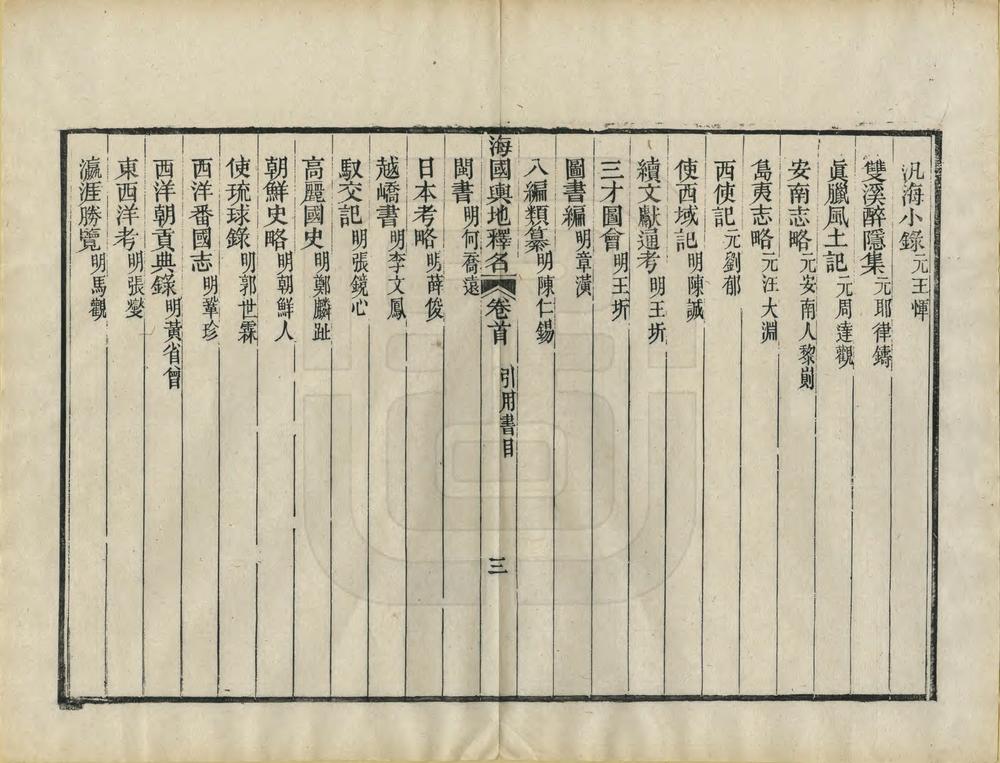 汎海小錄元王惲
雙溪醉隱集元耶律鑄
眞臘風土記元周達觀
安南志略元安南人黎崱
島夷志略元汪大淵
西使記元劉郁
使西域記明陳誠
續文獻通考明王圻
三才圖會明王圻
圖書編明章潢
八編類纂明陳仁錫
海國輿地釋名 卷首 引用書目 三
閩書明何喬遠
日本考略明薛俊
越嶠書明李文鳳
馭交記明張鏡心
高麗國史明鄭麟趾
朝鮮史略明朝鮮人
使琉球錄明郭世霖
西洋番國志明鞏珍
西洋朝貢典錄明黃省曾
東西洋考明張燮
瀛涯勝覽明馬觀